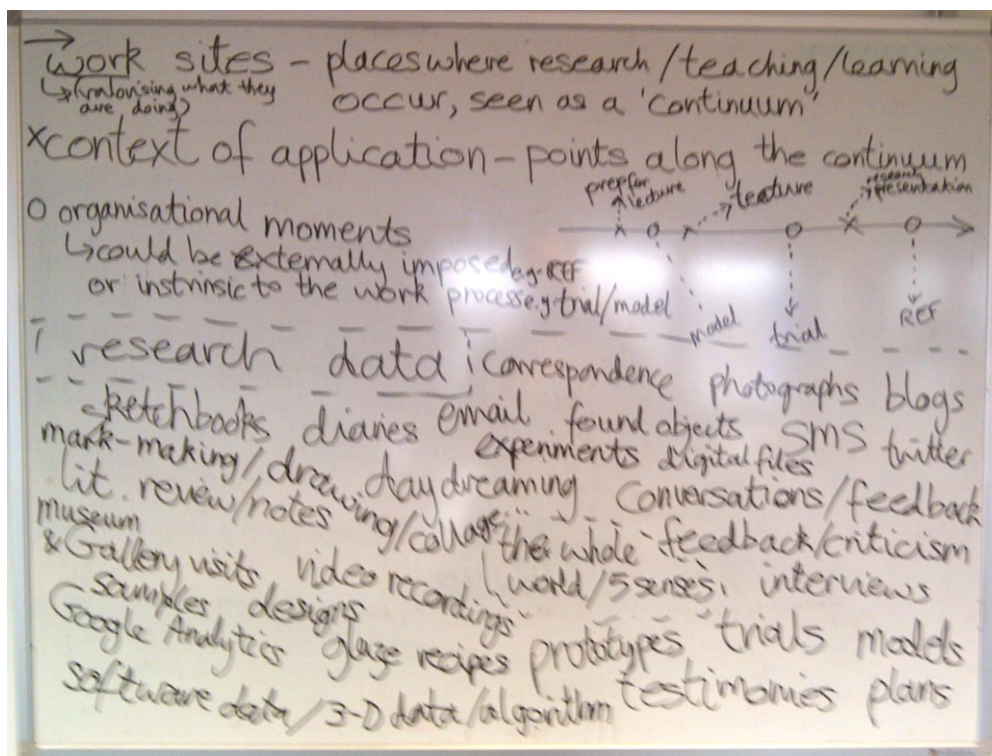 → work sites – places where research/teaching/learning
↳ (valorising what they are doing)
occur, seen as a 'continuum'
x context of application – points along the continuum
prep for lecture
lecture
research presentation
O organisational moments
↳ could be externally imposed e.g. REF
or instrinsic to the work process e.g. trial/model
model
trial
REF
research data
correspondence photographs blogs
sketchbooks diaries email found objects SMS twitter
experiments digital files
mark-making/drawing/collage daydreaming conversations/feedback
lit. review/notes the whole world/5 senses feedback/criticism
museum & Gallery visits video recordings interviews
samples designs
Google Analytics glaze recipes prototypes trials models
software data/3-D data/algorithm testimonies plans